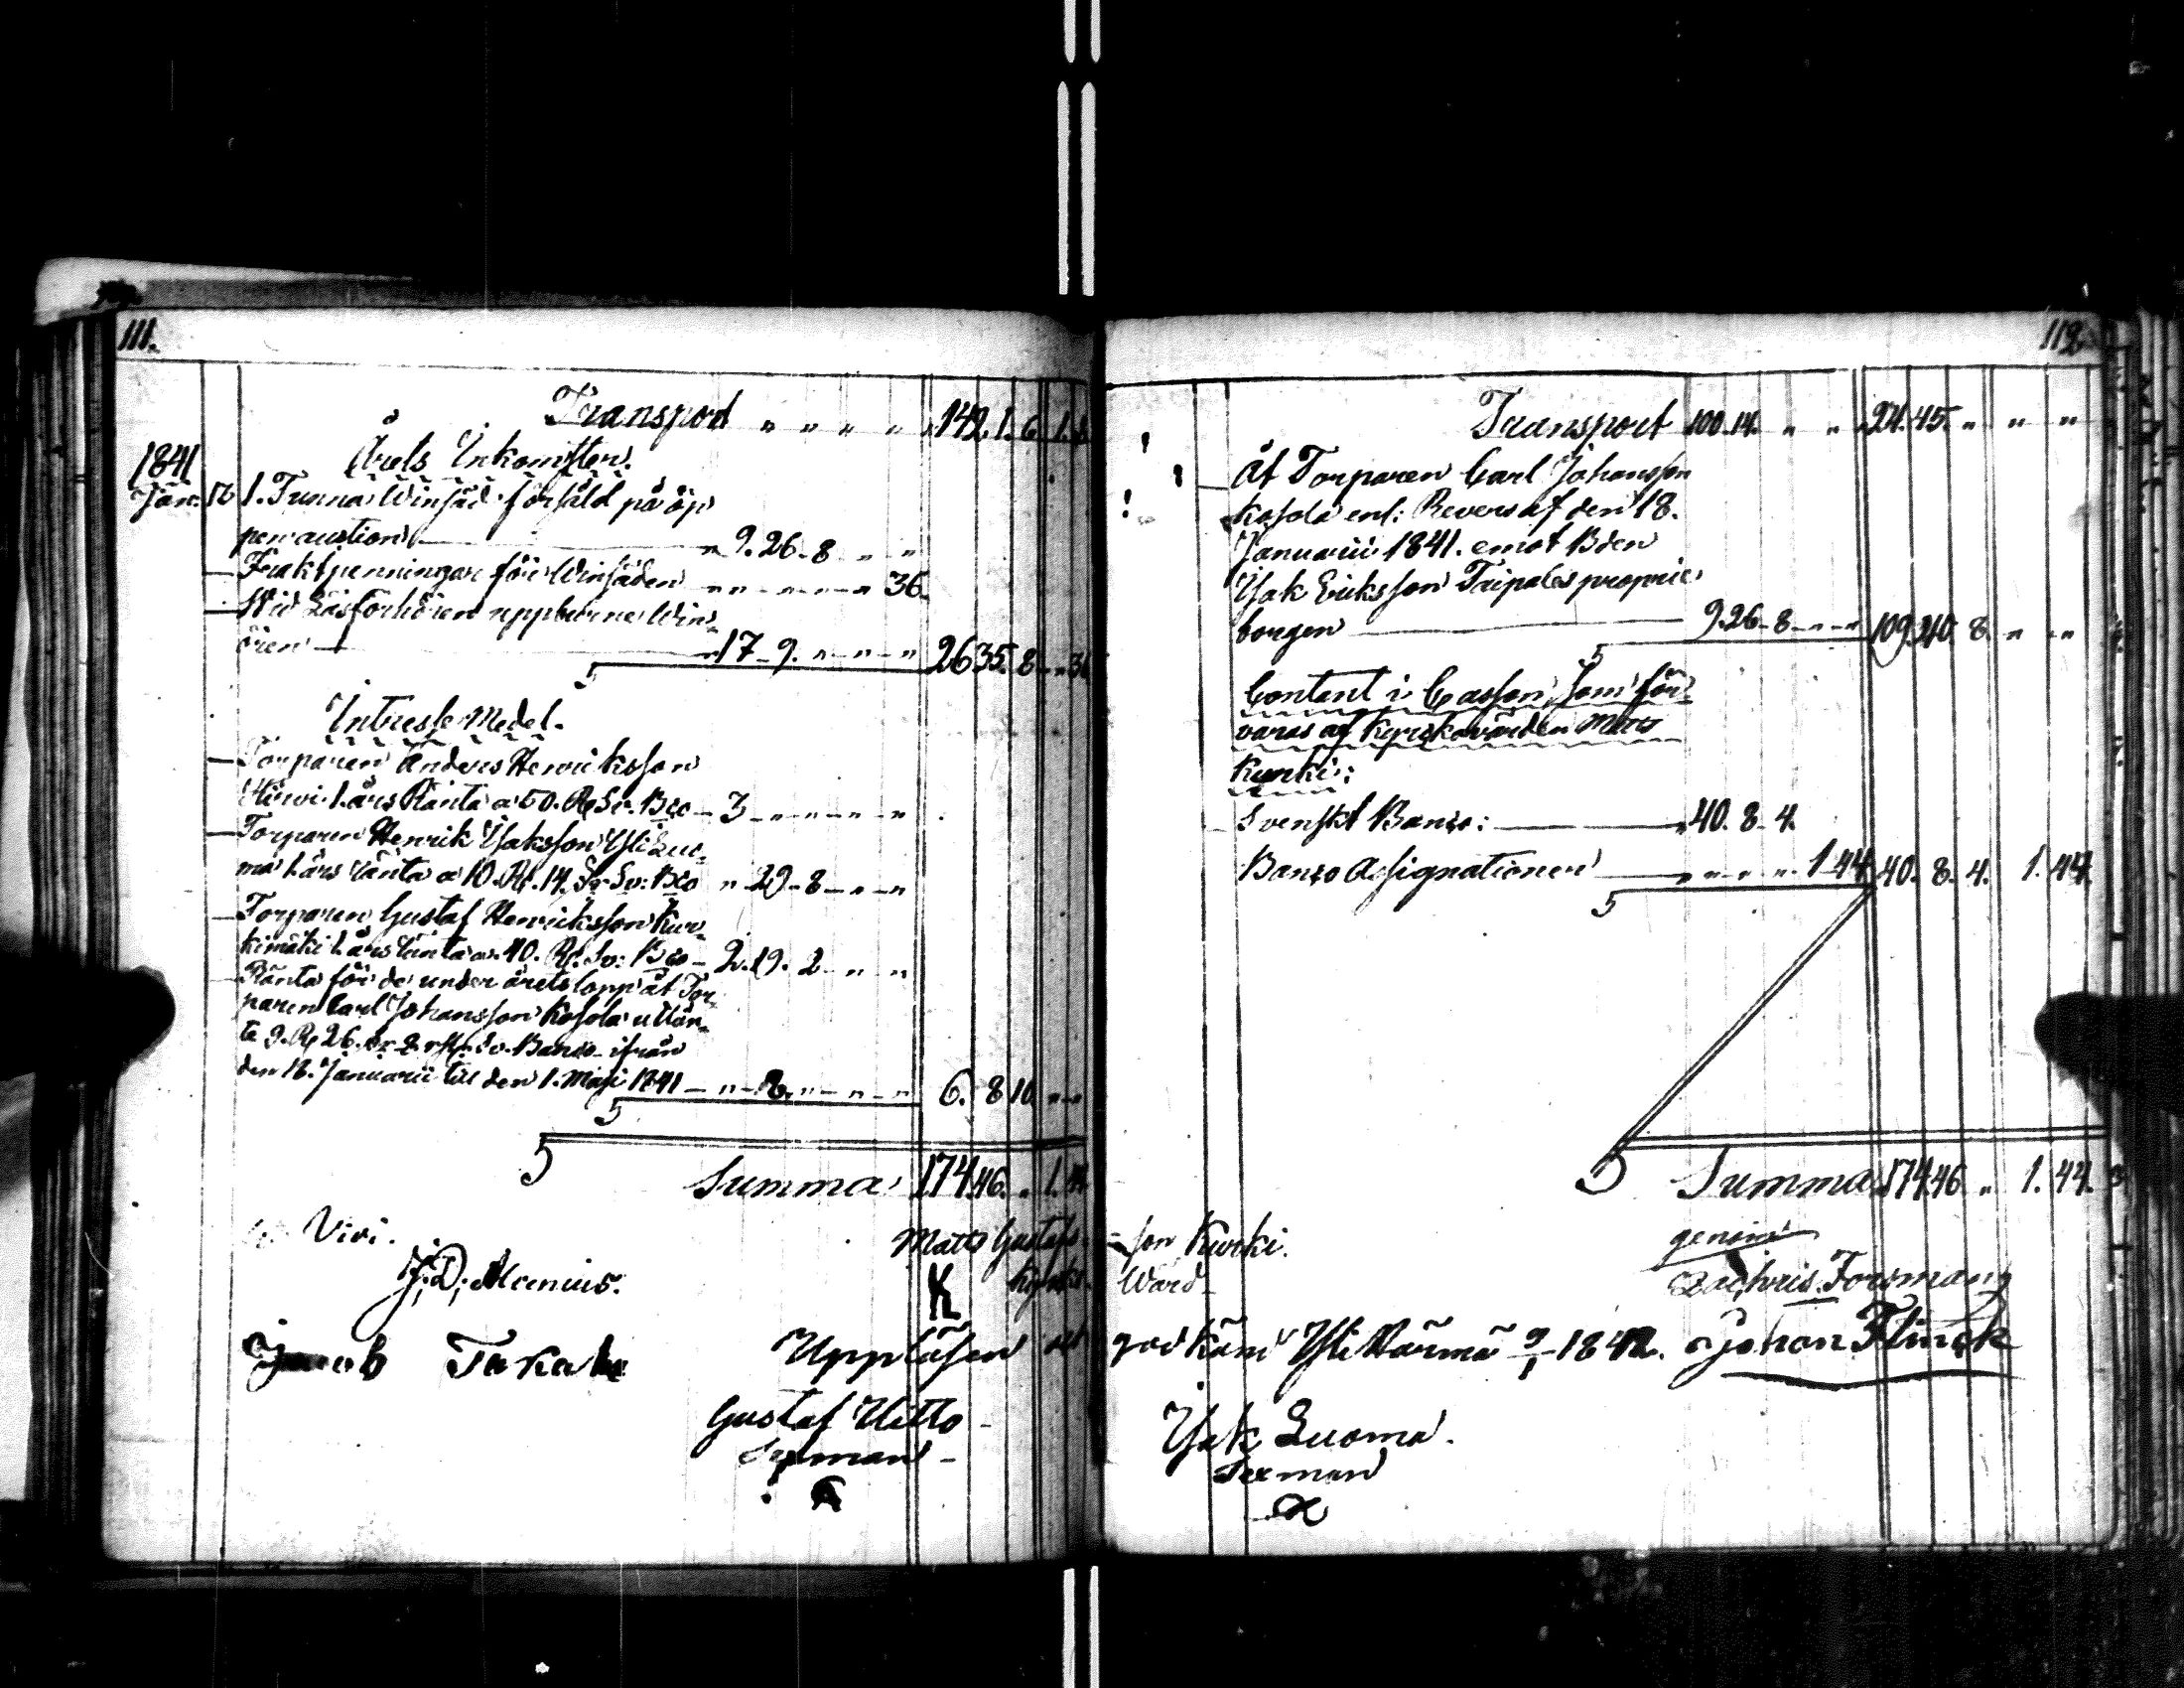 111.
Transport " " " " " 142. 1. 6. 1.
Årets Inkomster.
1841
Jan. 1. Tunna Winsäd försåld på öp
pen auction " 9. 26. 8 " "
Fraktpenningar för Winsäden " " " " " 36.
Wid Läsförhören uppburne Win-
ören 17. 9. " " " 26 35. 8 " 36
Intresse Medel.
Torparen Anders Henriksson
Hirvi 1. års Ränta a 50. R Sv. Bco 3 " " " "
Torparen Henrik Isaksson Yli Luo-
ma 1. års ränta a 10. R. 14. Sk. Sv: Bco " 29. 8 " "
Torparen Gustaf Henriksson Kur-
kimäki 1. års ränta a 40. R. Sv: Bco 2. 19. 2 " "
Ränta för de under årets lopp åt Tor-
paren Carl Johansson Kosola utlån-
te 9. R 26. sk 8 rst. Sv. Banco ifrån
den 18. Januarii till den 1. Maji 1841 " 8. " " " 6. 8 10 " "
Summa 174. 46. " 1. 44
Vivi.
Matts Gustafs
J. D. Alcenius.
K Kyrko
Jacob Takala
Uppläsen
Gustaf Uitto
Sexman
112.
Transport 100. 14. " " 24. 45. " " "
åt Torparen Carl Johansson
Kosola enl: Revers af den 18.
Januarii 1841. emot Bden
Isak Eriksson Tripales proprie
borgen 9. 26. 8 " " 109. 40. 8. " "
Contant i Cassan, som för-
varas af Kyrkovärden Matts
Kurki:
Svenskt Banco: 40. 8. 4.
Banco Assignationer " " " " 1. 44 40. 8. 4. 1. 44.
Summa 174 46 " 1. 44.
son Kurki.
Ward
Zachris Forsman
godkänd Yli Härmä 9/1 1842. Johan Flinck
Isak Luoma.
Sexman